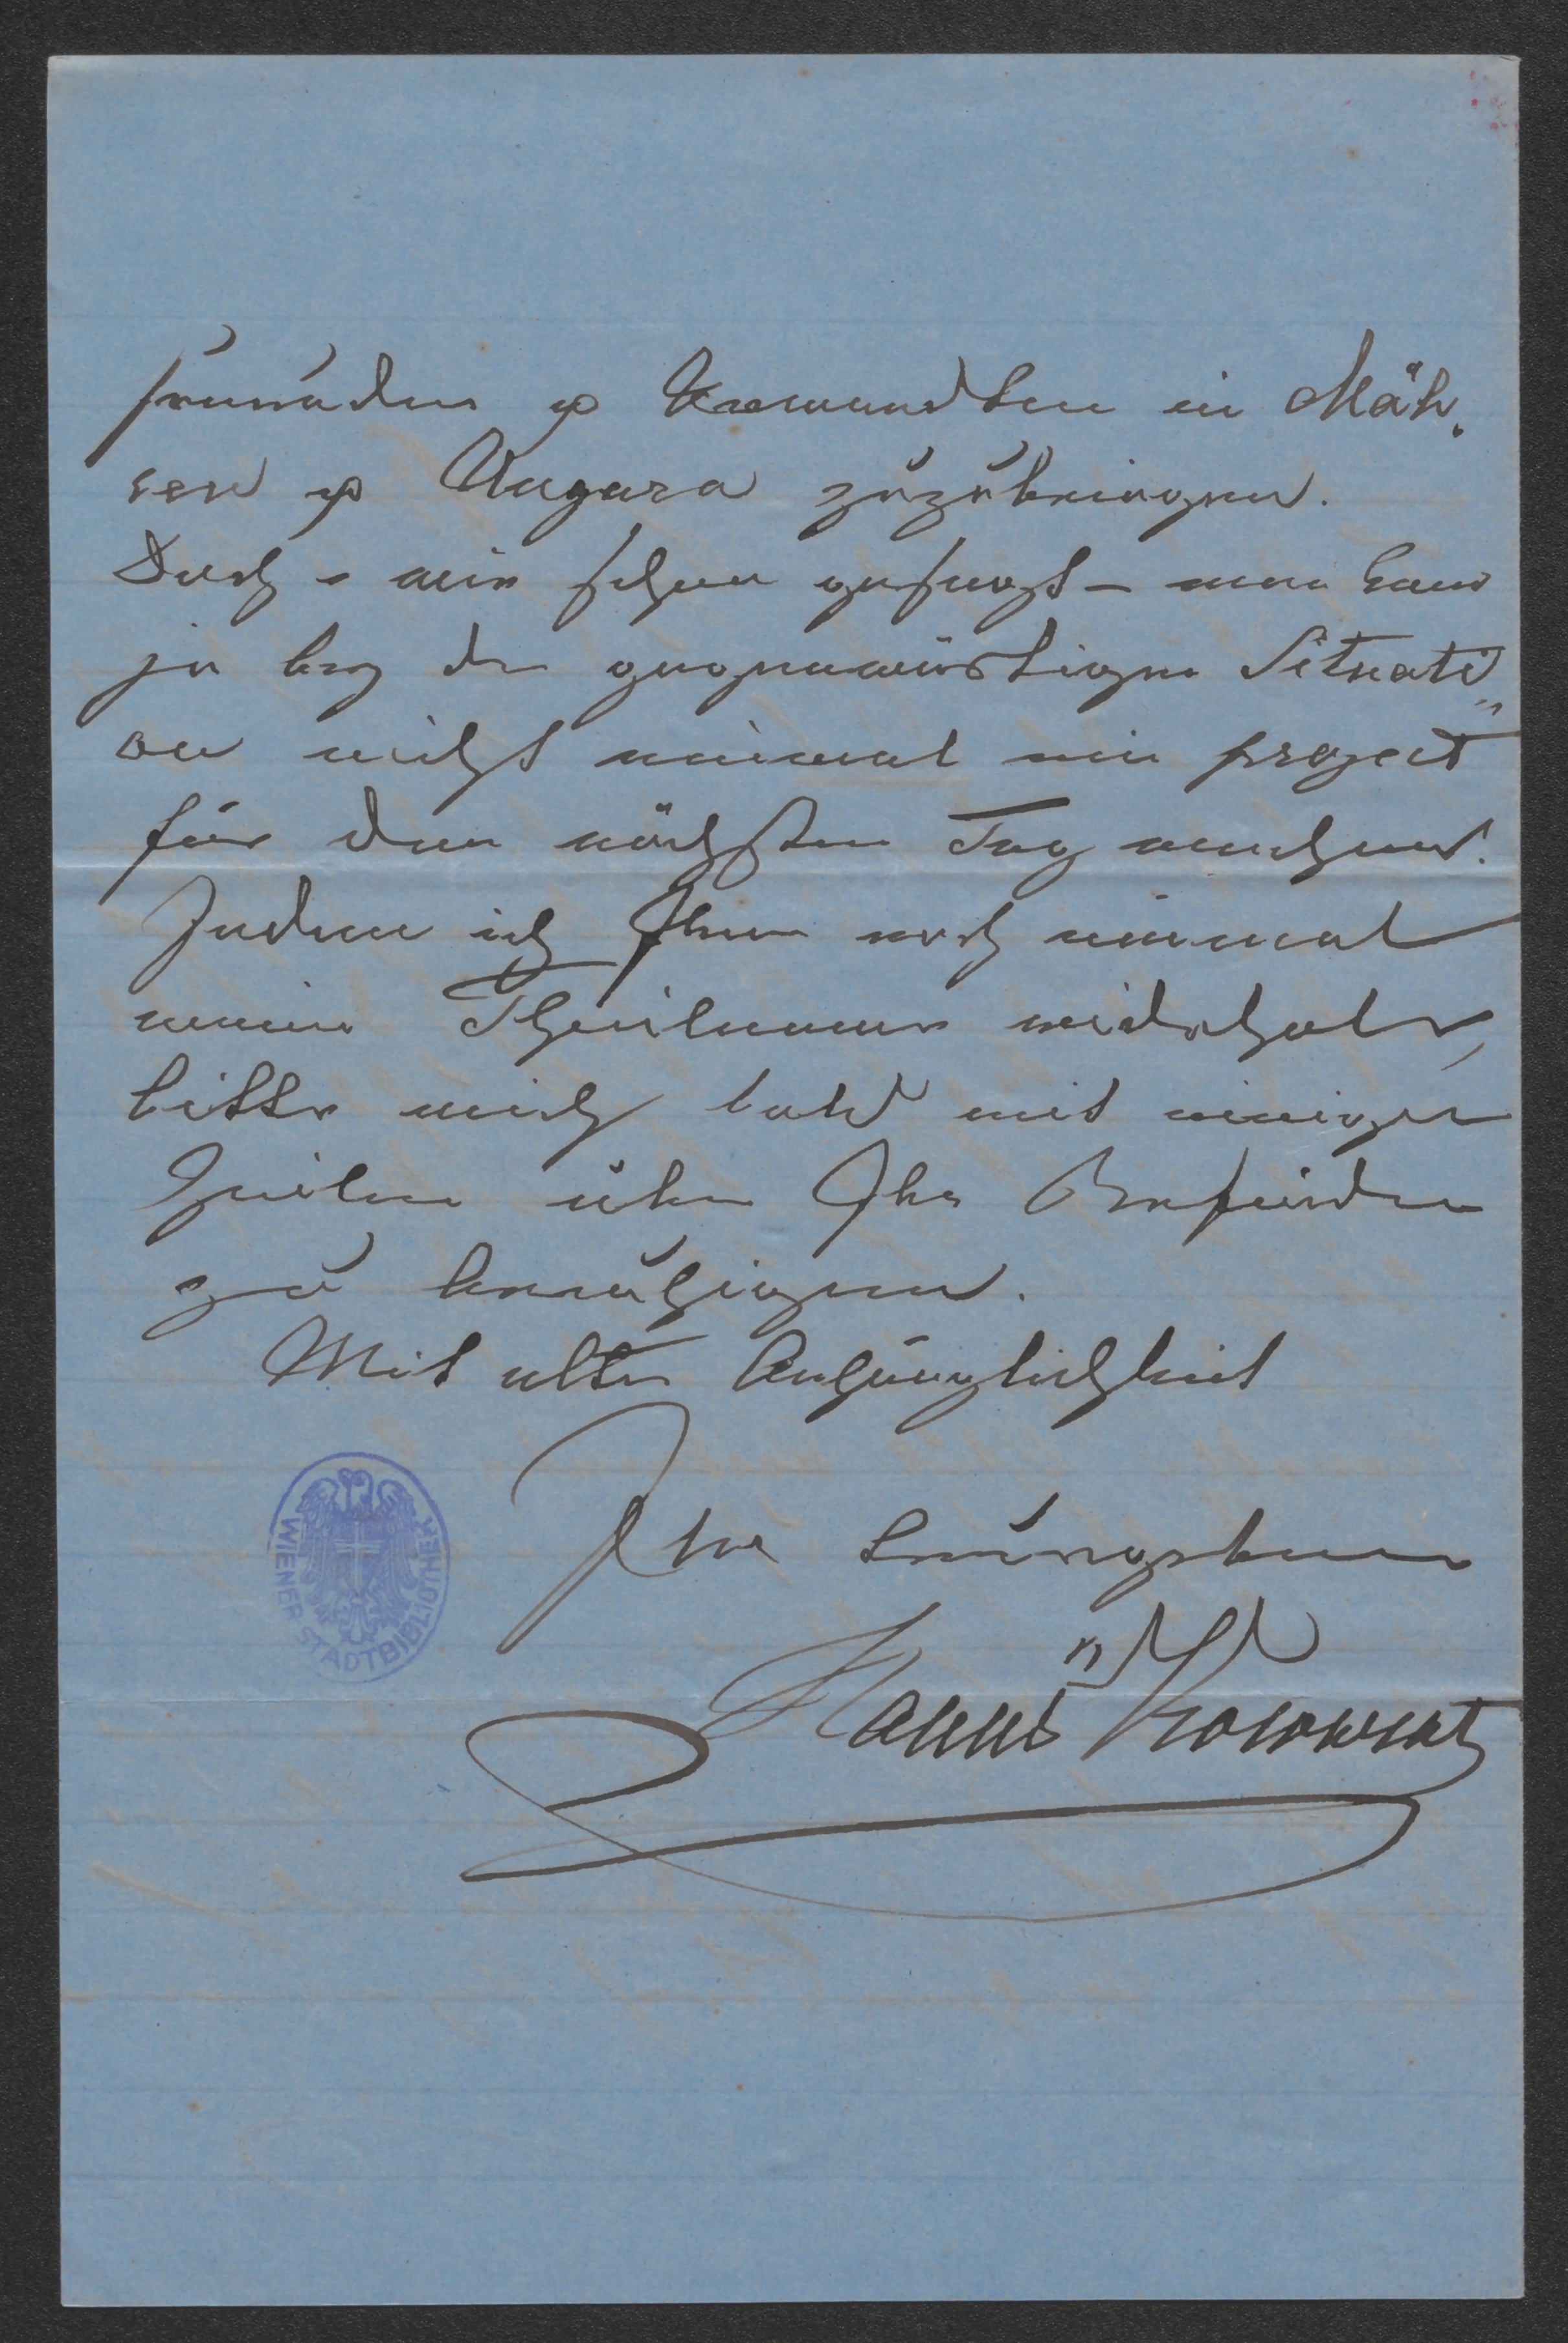 freunden & Verwandten in Mäh.
ren & Ungarn zuzubringen.
Doch – wie schon gesagt – man kann
ja bey der gegenwärtigen Situati„
on nicht einmal ein project
für den nächsten Tag machen.
Indem ich Ihnen noch einmal
meine Theilname widerhole,
bitte mich bald mit einigen
Zeilen über Ihr Befinden
zu beruhigen.
Mit alter Anhänglichkeit
Ihr
Hanuš Kolowrat
WIENER STADTBIBLIOTHEK